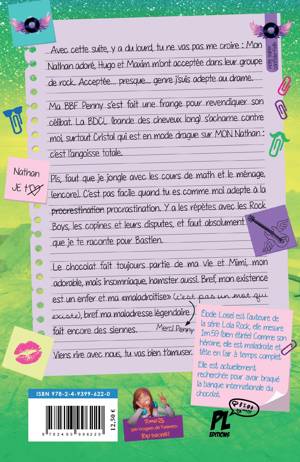 Avec cette suite, y a du lourd, tu ne vas pas me croire : Mon
Nathan adoré, Hugo et Maxim m'ont acceptée dans leur groupe
de rock. Acceptée... presque... genre j'suis adepte au drame.
Ma BBF Penny s'est fait une frange pour revendiquer son
célibat. La BDCL (bande des cheveux long) s'acharne contre
moi, surtout Cristal qui est en mode drague sur MON Nathan
: c'est l'angoisse totale.
Nathan
JE t
Pis, faut que je jongle avec les cours de math et le ménage,
(encore). C'est pas facile quand tu es comme moi adepte à la
procrestination procrastination. Y a les répètes avec les Rock
Boys, les copines et leurs disputes, et faut absolument
que je te raconte pour Bastien.
Le chocolat fait toujours partie de ma vie et Mimi, mon
adorable, mais insomniaque, hamster aussi. Bref, mon existence
est un enfer et ma «maladroitise» (c'est pas un mot qui
existe), bref, ma maladresse légendaire
fait encore des siennes.
Merci Penny
Viens rire avec nous, tu vas bien t'amuser.
Elodie Loisel est l'auteure de
la série Lola Rock, elle mesure
1m59 bien étirée! Comme son
héroïne, elle est maladroite et
tête en l'air à temps complet.
Elle est actuellement
recherchée pour avoir braqué
la banque internationale du
chocolat.
ISBN : 978-2-4-9399-622-0
12,50 €
PL
EDITIONS